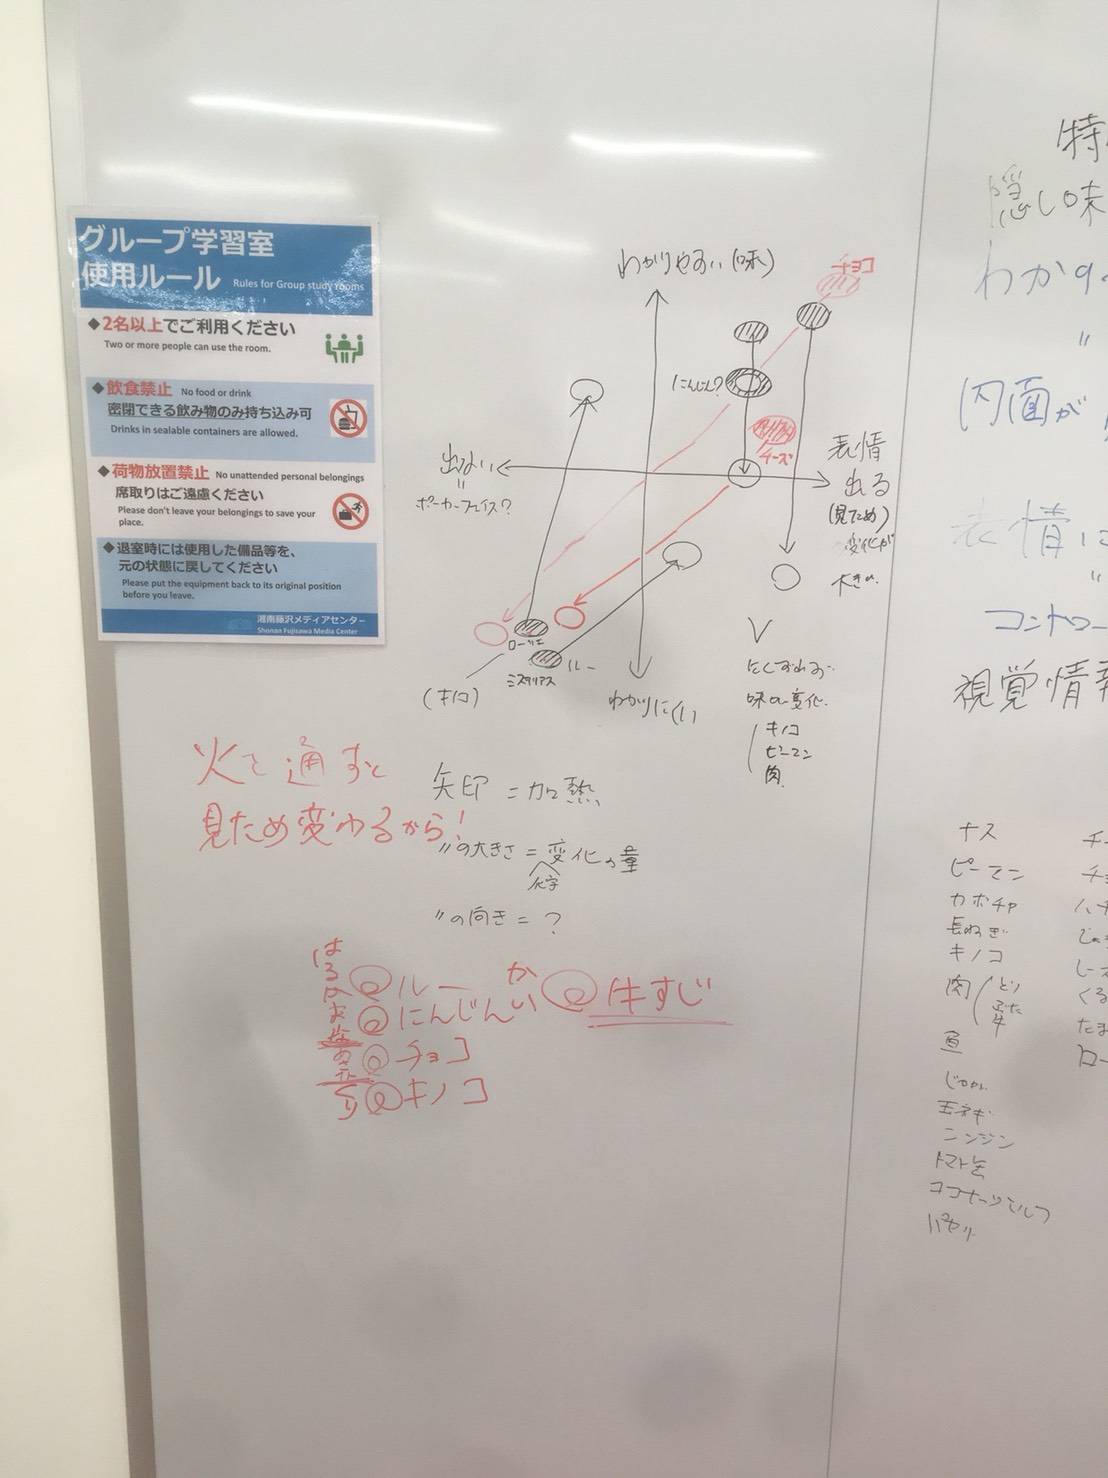 グループ学習室
使用ルール Rules for Group study rooms
◆2名以上でご利用ください
Two or more people can use the room.
◆飲食禁止 No food or drink
密閉できる飲み物のみ持ち込み可
Drinks in sealable containers are allowed.
◆荷物放置禁止 No unattended personal belongings
席取りはご遠慮ください
Please don't leave your belongings to save your
place.
◆退室時には使用した備品等を、
元の状態に戻してください
Please put the equipment back to its original position
before you leave.
湘南藤沢メディアセンター
Shonan Fujisawa Media Center
わかりやすい(味)
チョコ
にんじん?
チーズ
出ない
=
ポーカーフェイス?
表情
出る
(見ため)
変化が
大きい
ルー
ミステリアス
(キノコ)
わかりにくい
味の変化
キノコ
ピーマン
肉
火を通すと
見ため変わるから!
矢印 = 加熱
〃の大きさ = 変化の量
〃の向き = ?
ルー
にんじん
チョコ
キノコ
かい
牛すじ
隠し味
内面が
表情に
〃
コントロー
視覚情報
ナス
ピーマン
カボチャ
長ねぎ
キノコ
肉
とり
ぶた
牛
魚
じゃがい
玉ネギ
ニンジン
トマト缶
ココナーツミルク
パセリ